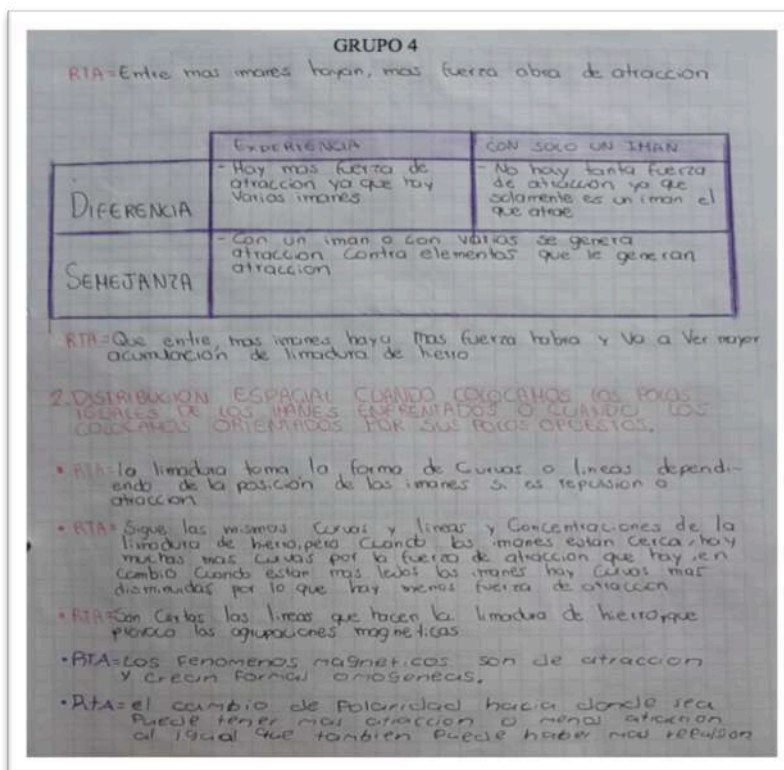 GRUPO 4
RTA=Entre mas imanes hayan, mas fuerza abra de atraccion
EXPERIENCIA
CON SOLO UN IMAN
DIFERENCIA
- Hay mas fuerza de
atraccion ya que hay
varios imanes
- No hay tanta fuerza
de atraccion ya que
solamente es un iman el
que atrae
SEMEJANZA
- Con un iman o con varios se genera
atraccion contra elementos que le generan
atraccion
RTA=Que entre, mas imanes haya mas fuerza habra y va a ver mayor
acumulación de limadura de hierro
2. DISTRIBUCION ESPACIAL CUANDO COLOCAMOS LOS POLOS
IGUALES DE LOS IMANES ENFRENTADOS O CUANDO LOS
COLOCAMOS ORIENTADOS POR SUS POLOS OPUESTOS.
• RTA=la limadura toma la forma de curvas o lineas dependi-
endo de la posición de los imanes si es repulsion o
atraccion
• RTA= Sigue las mismas curvas y lineas y concentraciones de la
limadura de hierro, pero cuando los imanes estan cerca, hay
muchas mas curvas por la fuerza de atraccion que hay, en
cambio cuando estan mas lejos los imanes hay curvas mas
disminuidas por lo que hay menos fuerza de atraccion
• RTA=Son las lineas que hacen la limadura de hierro, que
provoca las agrupaciones magneticas
• RTA=Los fenomenos magneticos son de atraccion
y crean formas omogeneas.
• RtA=el cambio de polaridad hacia donde sea
puede tener mas atraccion o menos atraccion
al igual que tambien puede haber mas repulsion